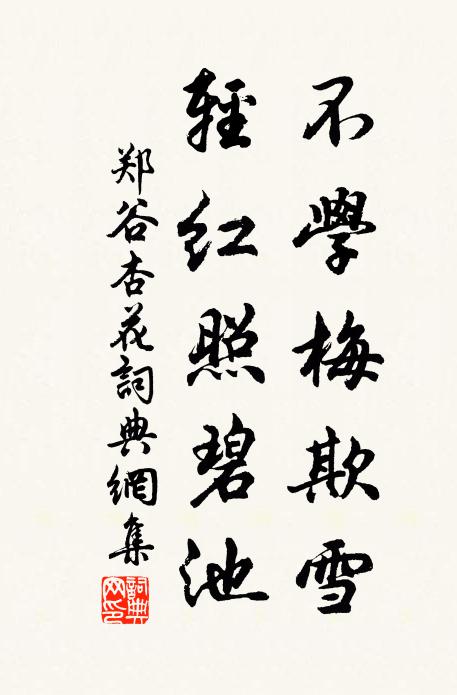 不學梅欺雪
輕紅照碧池
郑谷杏花詞典網集
詞典網印